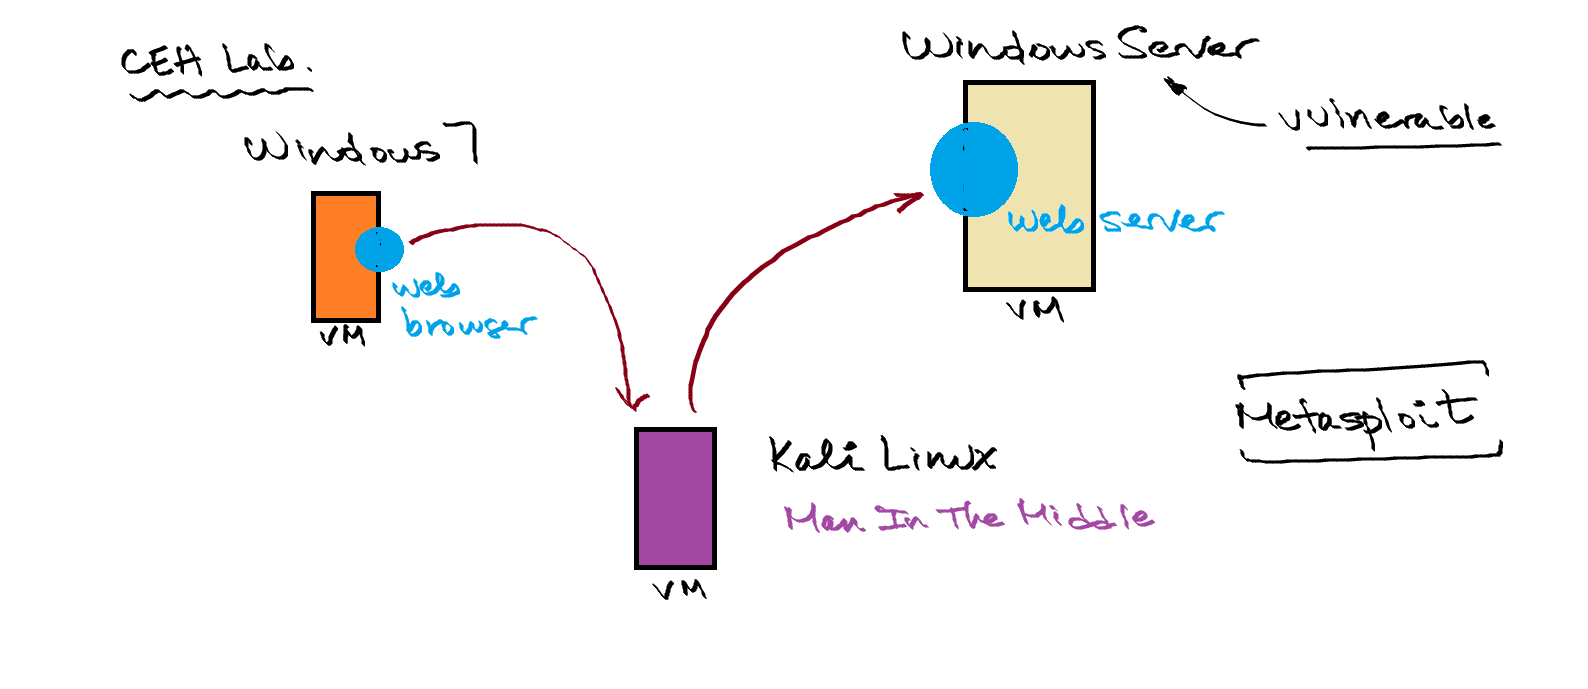 CEH Lab.
Windows 7
web
browser
VM
Windows Server
vulnerable
web server
VM
Kali Linux
Man In The Middle
VM
Metasploit